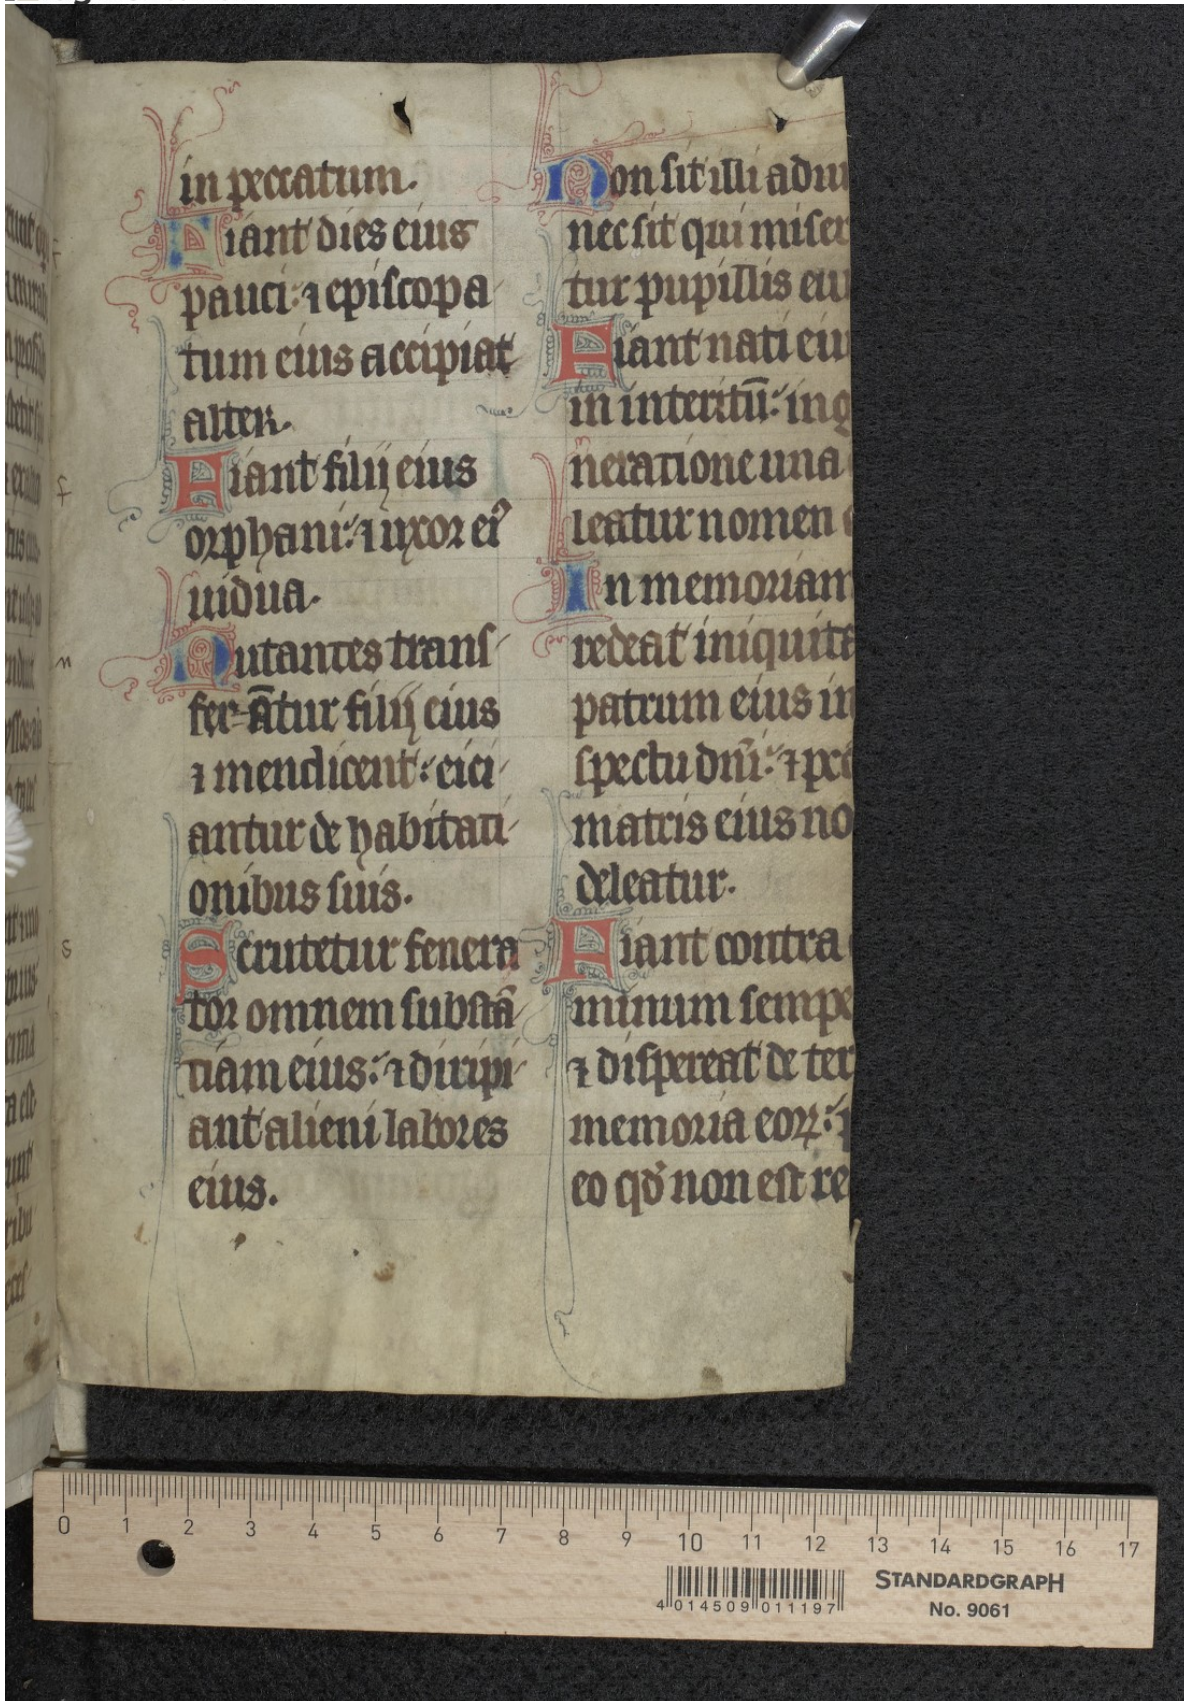 in peccatum.
Fiant dies eius
pauci: ⁊ episcopa
tum eius accipiat
alter.
Fiant filij eius
orphani: ⁊ uxor eiꝰ
uidua.
Nutantes trans
fer-ātur filij eius
⁊ mendicent: eici
antur de habitati
onibus suis.
Scrutetur fenera
tor omnem substā
tiam eius: ⁊ diripi
ant alieni labores
eius.
Non sit illi adiu
nec sit qui miser
tur pupillis eiu
Fiant nati eiu
in interitū: in g
neratione una
leatur nomen
In memoriam
redeat iniquita
patrum eius in
spectu dn̄i: ⁊ pec
matris eius no
deleatur.
Fiant contra
minum sempe
⁊ dispereat de ter
memoria eoꝝ:
eo qd̄ non est re
f
n
s
0 1 2 3 4 5 6 7 8 9 10 11 12 13 14 15 16 17
4 014509 011197
STANDARDGRAPH
No. 9061